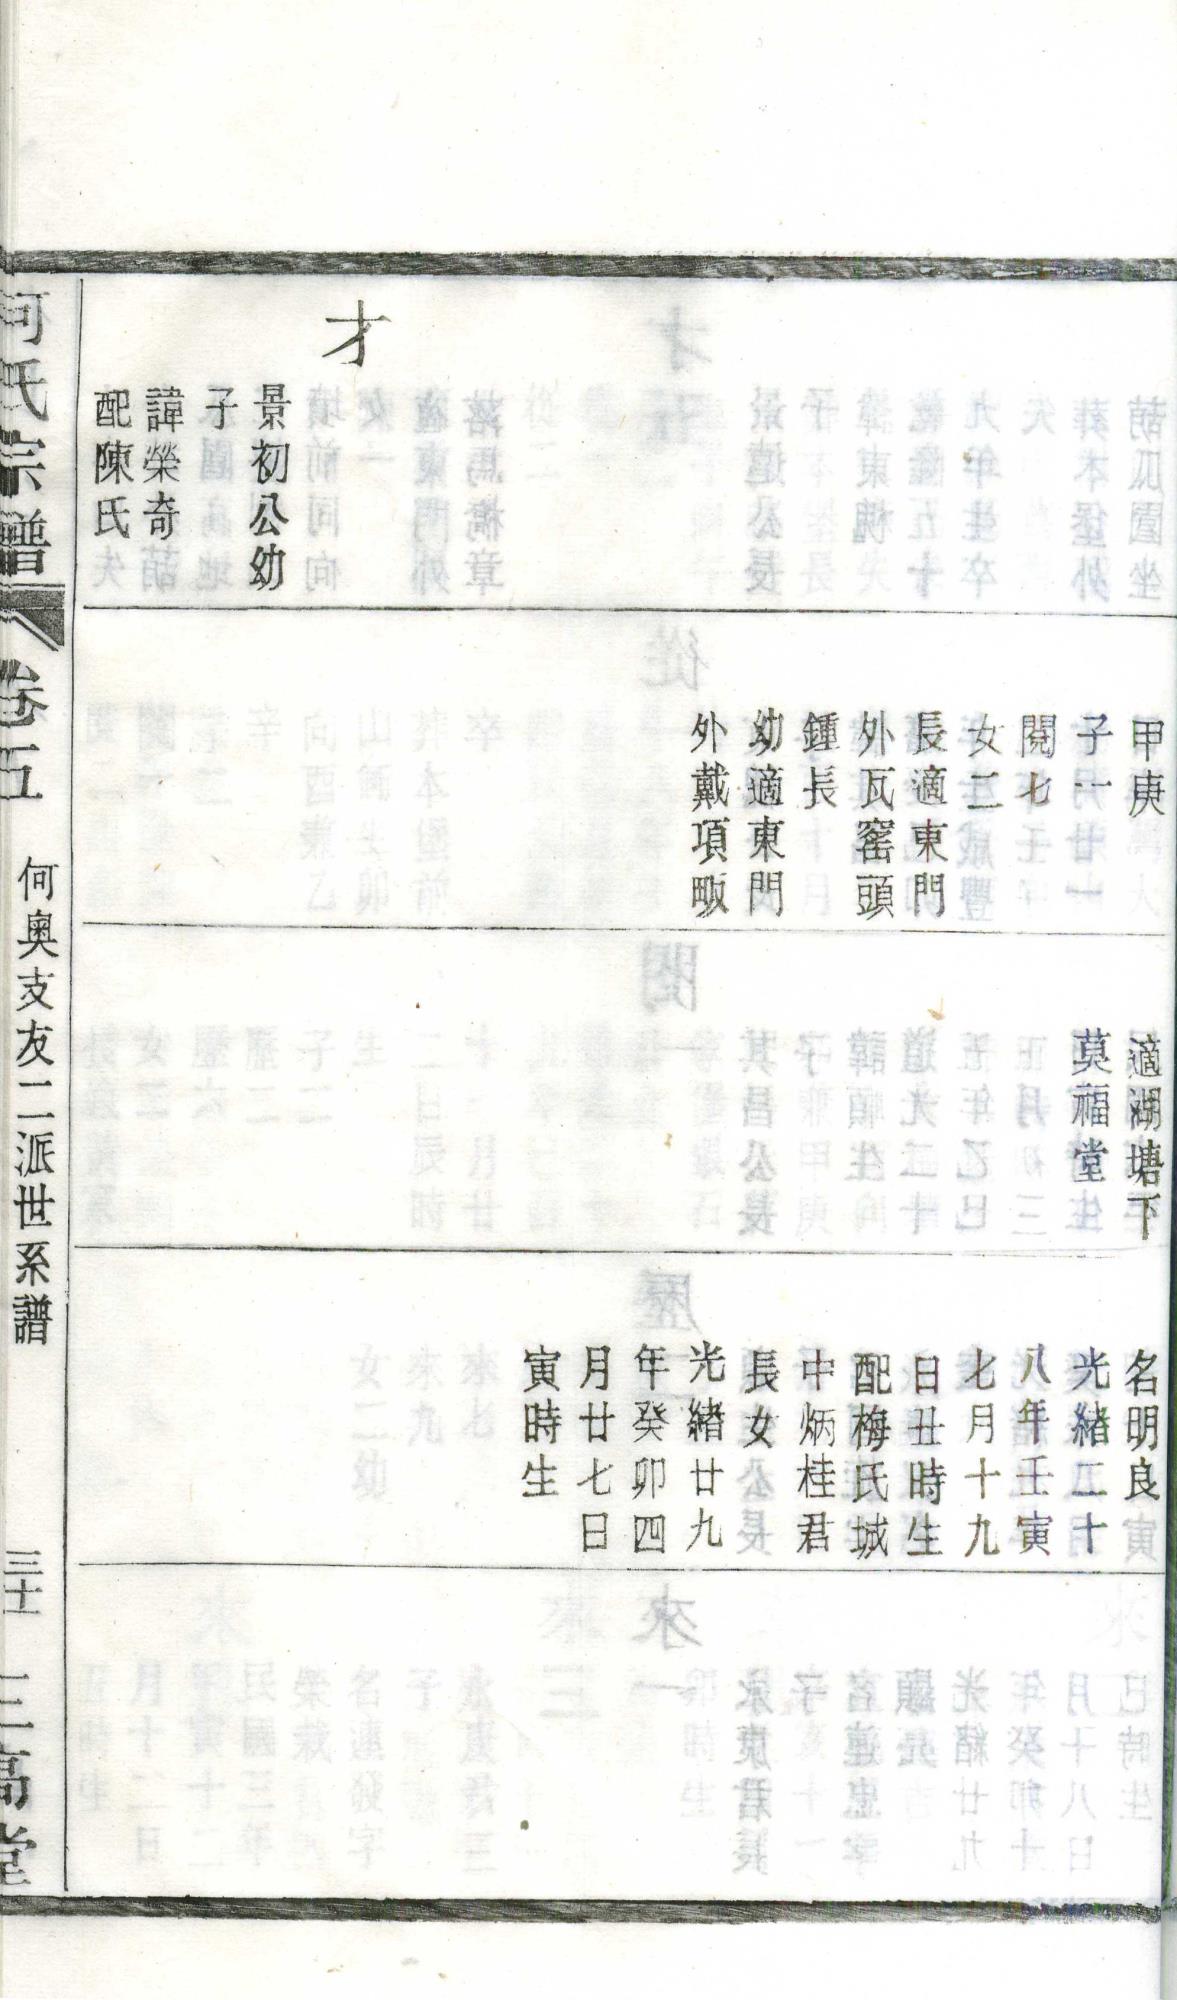 才
景初公幼
子
諱榮奇
配陳氏
甲庚
子一
閱七
女二
長適東門
外瓦窰頭
鍾長
幼適東門
外戴項畈
適湖塘下
莫福堂
名明良
光緒二十
八年壬寅
七月十九
日丑時生
配梅氏城
中炳桂君
長女
光緒廿九
年癸卯四
月廿七日
寅時生
何氏宗譜
卷五
何奧支友二派世系譜
三高堂